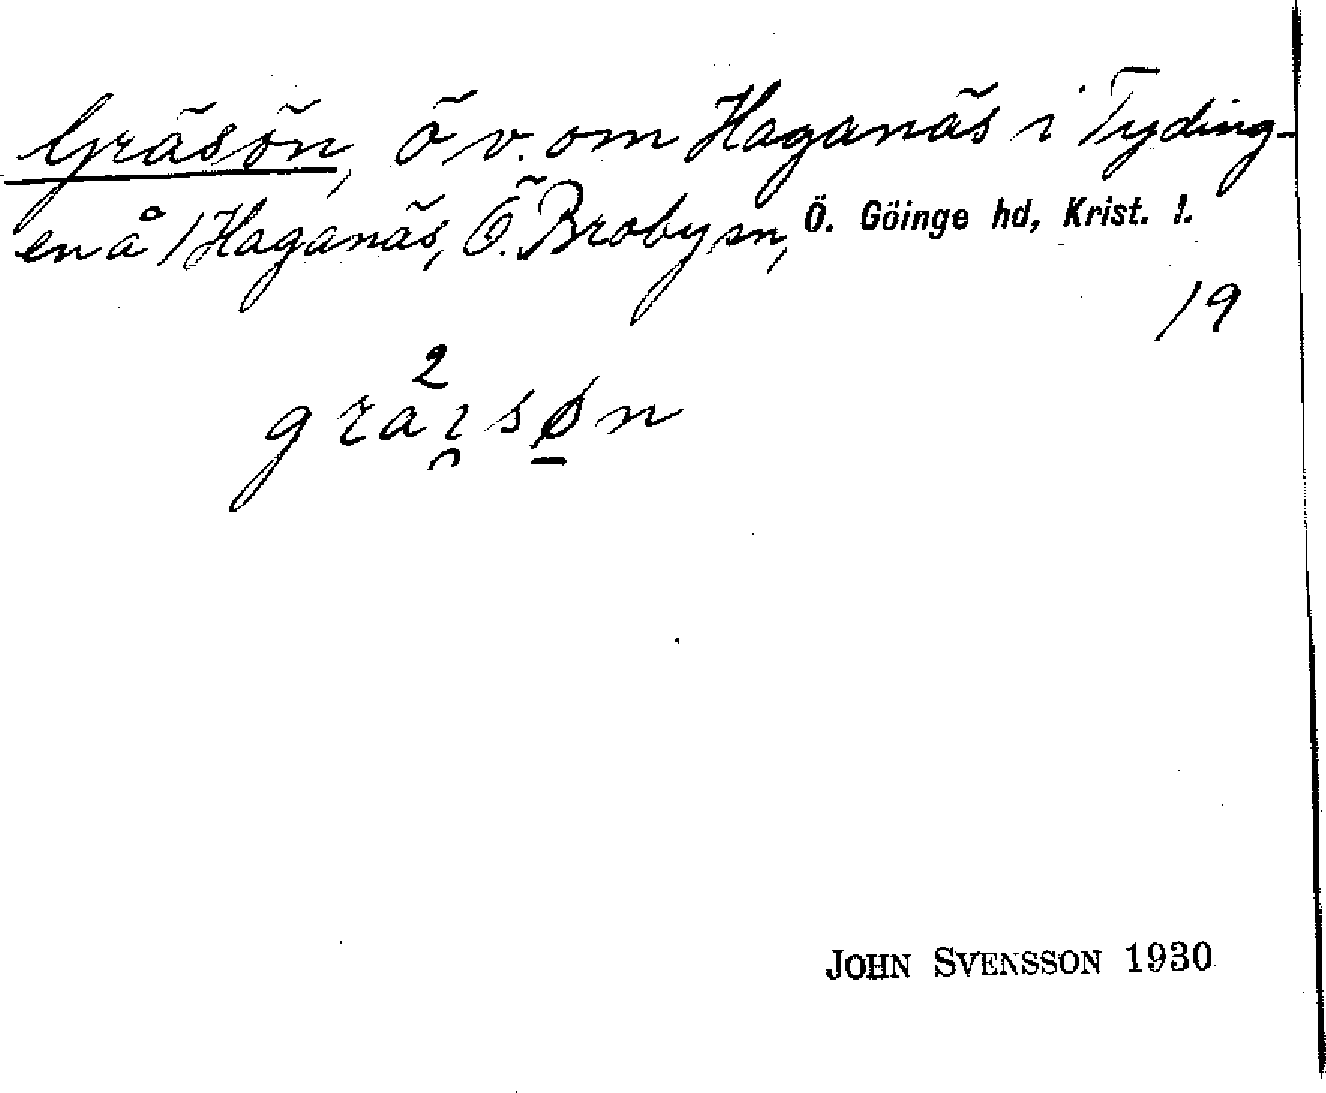 Gräsön, ö v. om Haganäs i Tyding-
en å /Haganäs, Ö. Broby sn, Ö. Göinge hd, Krist. l.
/9
2
graısøn
JOHN SVENSSON 1930